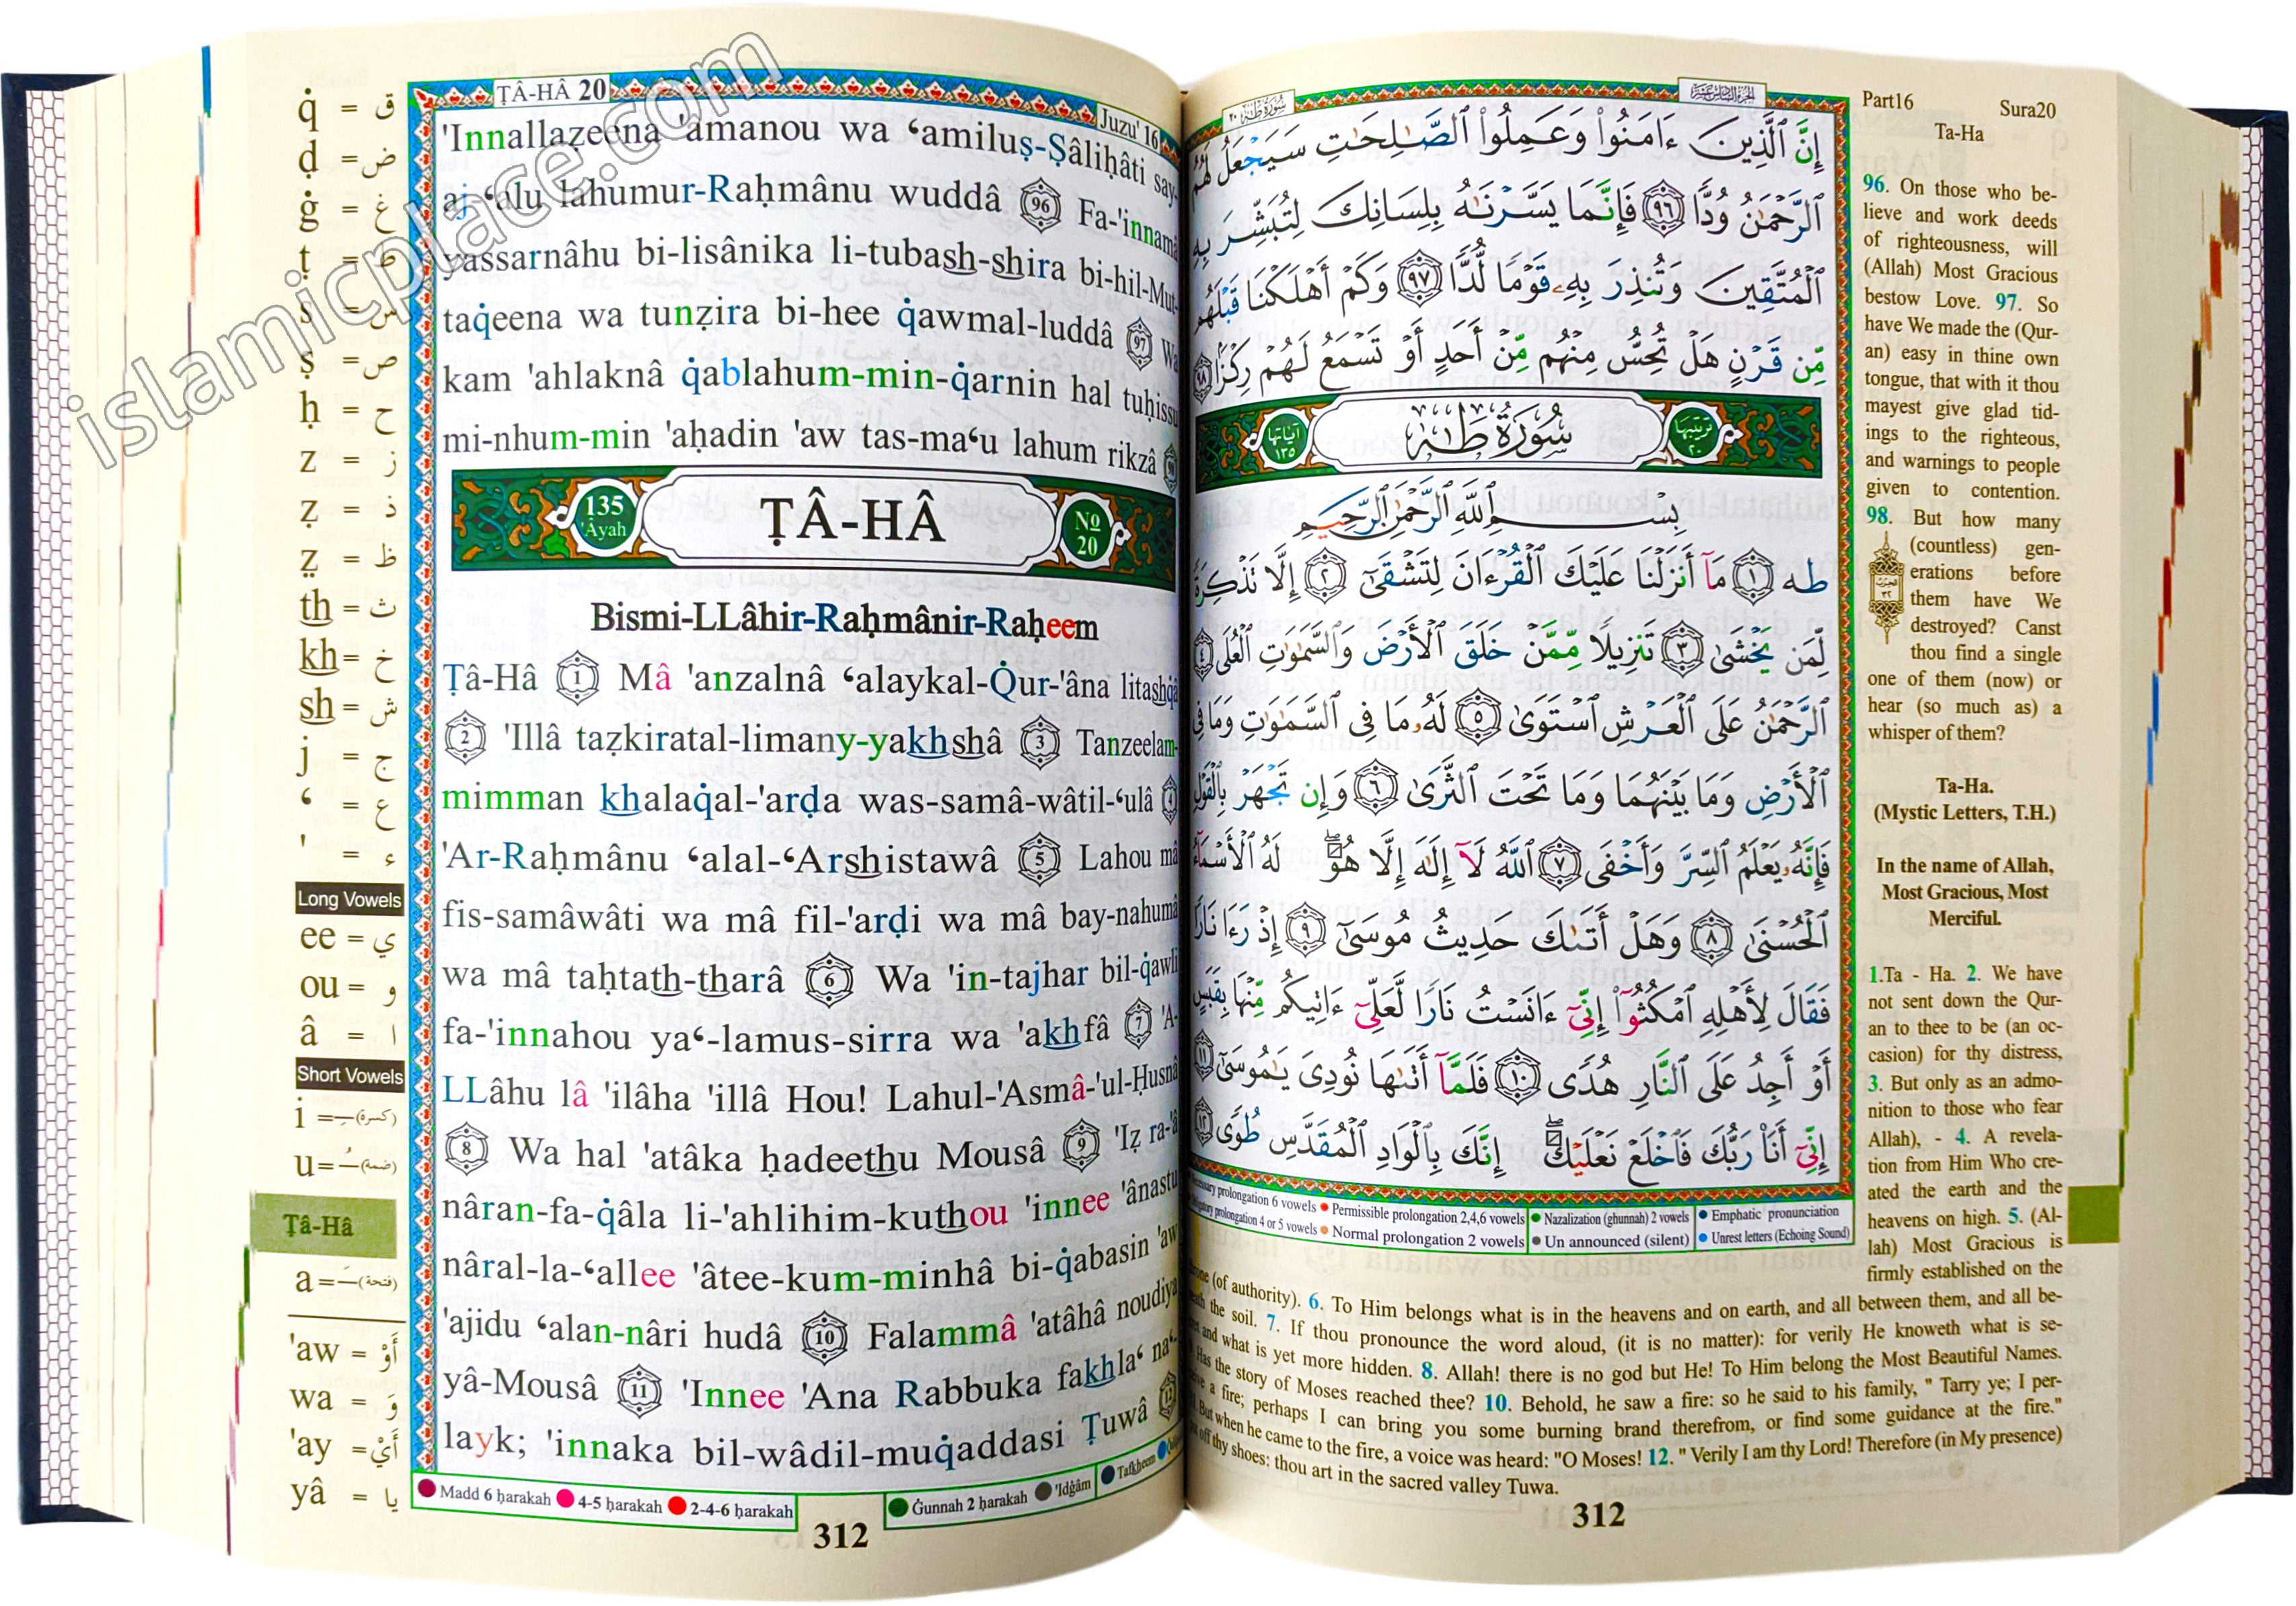 islamicplace.com
q̇ = ق
ḍ = ض
ġ = غ
ṭ = ط
s = س
ṣ = ص
ḥ = ح
z = ز
ẓ = ذ
th = ث
kh = خ
sh = ش
j = ج
ʻ = ع
' = ء
Long Vowels
ee = ي
ou = و
â = ا
Short Vowels
i = (كسرة)
u = (ضمة)
Ṭâ-Hâ
a = (فتحة)
'aw = أَوْ
wa = وَ
'ay = أَيْ
yâ = يا
ṬÂ-HÂ 20
Juzu' 16
'Innallaẓeena 'âmanou wa ʻamiluṣ-Ṣâliḥâti say-
aj-ʻalu lahumur-Raḥmânu wuddâ 96 Fa-'innamâ
yassarnâhu bi-lisânika li-tubash-shira bi-hil-Mut-
taq̇eena wa tunẓira bi-hee q̇awmal-luddâ 97 Wa
kam 'ahlaknâ q̇ablahum-min-q̇arnin hal tuḥissu
mi-nhum-min 'aḥadin 'aw tas-maʻu lahum rikzâ 98
135 'Âyah
ṬÂ-HÂ
No 20
Bismi-LLâhir-Raḥmânir-Raḥeem
Ṭâ-Hâ 1 Mâ 'anzalnâ ʻalaykal-Q̇ur-'âna litashq̇â
2 'Illâ taẓkiratal-limany-yakhshâ 3 Tanzeelam-
mimman khalaq̇al-'arḍa was-samâ-wâtil-ʻulâ 4
'Ar-Raḥmânu ʻalal-ʻArshistawâ 5 Lahou mâ
fis-samâwâti wa mâ fil-'arḍi wa mâ bay-nahumâ
wa mâ taḥtath-tharâ 6 Wa 'in-tajhar bil-q̇awli
fa-'innahou yaʻ-lamus-sirra wa 'akhfâ 7 'A-
LLâhu lâ 'ilâha 'illâ Hou! Lahul-'Asmâ-'ul-Ḥusnâ
8 Wa hal 'atâka ḥadeethu Mousâ 9 'Iẓ ra-'â
nâran-fa-q̇âla li-'ahlihim-kuthou 'innee 'ânastu
nâral-la-ʻallee 'âtee-kum-minhâ bi-q̇abasin 'aw
'ajidu ʻalan-nâri hudâ 10 Falammâ 'atâhâ noudiya
yâ-Mousâ 11 'Innee 'Ana Rabbuka fakhlaʻ naʻ-
layk; 'innaka bil-wâdil-muq̇addasi Ṭuwâ 12
Madd 6 ḥarakah 4-5 ḥarakah 2-4-6 ḥarakah
Ġunnah 2 ḥarakah 'Idġâm Tafkheem
312
سُورَةُ طه ٢٠
الجزء السادس عشر
إِنَّ ٱلَّذِينَ ءَامَنُوا۟ وَعَمِلُوا۟ ٱلصَّـٰلِحَـٰتِ سَيَجْعَلُ لَهُمُ
ٱلرَّحْمَـٰنُ وُدًّا ٩٦ فَإِنَّمَا يَسَّرْنَـٰهُ بِلِسَانِكَ لِتُبَشِّرَ بِهِ
ٱلْمُتَّقِينَ وَتُنذِرَ بِهِۦ قَوْمًا لُّدًّا ٩٧ وَكَمْ أَهْلَكْنَا قَبْلَهُم
مِّن قَرْنٍ هَلْ تُحِسُّ مِنْهُم مِّنْ أَحَدٍ أَوْ تَسْمَعُ لَهُمْ رِكْزًا ٩٨
ترتيبها ٢٠
سُورَةُ طه
آياتها ١٣٥
بِسْمِ ٱللَّهِ ٱلرَّحْمَـٰنِ ٱلرَّحِيمِ
طه ١ مَآ أَنزَلْنَا عَلَيْكَ ٱلْقُرْءَانَ لِتَشْقَىٰٓ ٢ إِلَّا تَذْكِرَةً
لِّمَن يَخْشَىٰ ٣ تَنزِيلًا مِّمَّنْ خَلَقَ ٱلْأَرْضَ وَٱلسَّمَـٰوَٰتِ ٱلْعُلَى ٤
ٱلرَّحْمَـٰنُ عَلَى ٱلْعَرْشِ ٱسْتَوَىٰ ٥ لَهُۥ مَا فِى ٱلسَّمَـٰوَٰتِ وَمَا فِى
ٱلْأَرْضِ وَمَا بَيْنَهُمَا وَمَا تَحْتَ ٱلثَّرَىٰ ٦ وَإِن تَجْهَرْ بِٱلْقَوْلِ
فَإِنَّهُۥ يَعْلَمُ ٱلسِّرَّ وَأَخْفَى ٧ ٱللَّهُ لَآ إِلَـٰهَ إِلَّا هُوَ ۖ لَهُ ٱلْأَسْمَآءُ
ٱلْحُسْنَىٰ ٨ وَهَلْ أَتَىٰكَ حَدِيثُ مُوسَىٰٓ ٩ إِذْ رَءَا نَارًا
فَقَالَ لِأَهْلِهِ ٱمْكُثُوٓا۟ إِنِّىٓ ءَانَسْتُ نَارًا لَّعَلِّىٓ ءَاتِيكُم مِّنْهَا بِقَبَسٍ
أَوْ أَجِدُ عَلَى ٱلنَّارِ هُدًى ١٠ فَلَمَّآ أَتَىٰهَا نُودِىَ يَـٰمُوسَىٰٓ ١١
إِنِّىٓ أَنَا۠ رَبُّكَ فَٱخْلَعْ نَعْلَيْكَ ۖ إِنَّكَ بِٱلْوَادِ ٱلْمُقَدَّسِ طُوًى ١٢
prolongation 6 vowels Permissible prolongation 2,4,6 vowels Nazalization (ghunnah) 2 vowels Emphatic pronunciation
prolongation 4 or 5 vowels Normal prolongation 2 vowels Un announced (silent) Unrest letters (Echoing Sound)
Part16 Sura20
Ta-Ha
96. On those who be-
lieve and work deeds
of righteousness, will
(Allah) Most Gracious
bestow Love. 97. So
have We made the (Qur-
an) easy in thine own
tongue, that with it thou
mayest give glad tid-
ings to the righteous,
and warnings to people
given to contention.
98. But how many
(countless) gen-
erations before
them have We
destroyed? Canst
thou find a single
one of them (now) or
hear (so much as) a
whisper of them?
Ta-Ha.
(Mystic Letters, T.H.)
In the name of Allah,
Most Gracious, Most
Merciful.
1.Ta - Ha. 2. We have
not sent down the Qur-
an to thee to be (an oc-
casion) for thy distress,
3. But only as an admo-
nition to those who fear
Allah), - 4. A revela-
tion from Him Who cre-
ated the earth and the
heavens on high. 5. (Al-
lah) Most Gracious is
firmly established on the
(of authority). 6. To Him belongs what is in the heavens and on earth, and all between them, and all be-
the soil. 7. If thou pronounce the word aloud, (it is no matter): for verily He knoweth what is se-
and what is yet more hidden. 8. Allah! there is no god but He! To Him belong the Most Beautiful Names.
Has the story of Moses reached thee? 10. Behold, he saw a fire: so he said to his family, " Tarry ye; I per-
a fire; perhaps I can bring you some burning brand therefrom, or find some guidance at the fire."
But when he came to the fire, a voice was heard: "O Moses! 12. " Verily I am thy Lord! Therefore (in My presence)
off thy shoes: thou art in the sacred valley Tuwa.
312